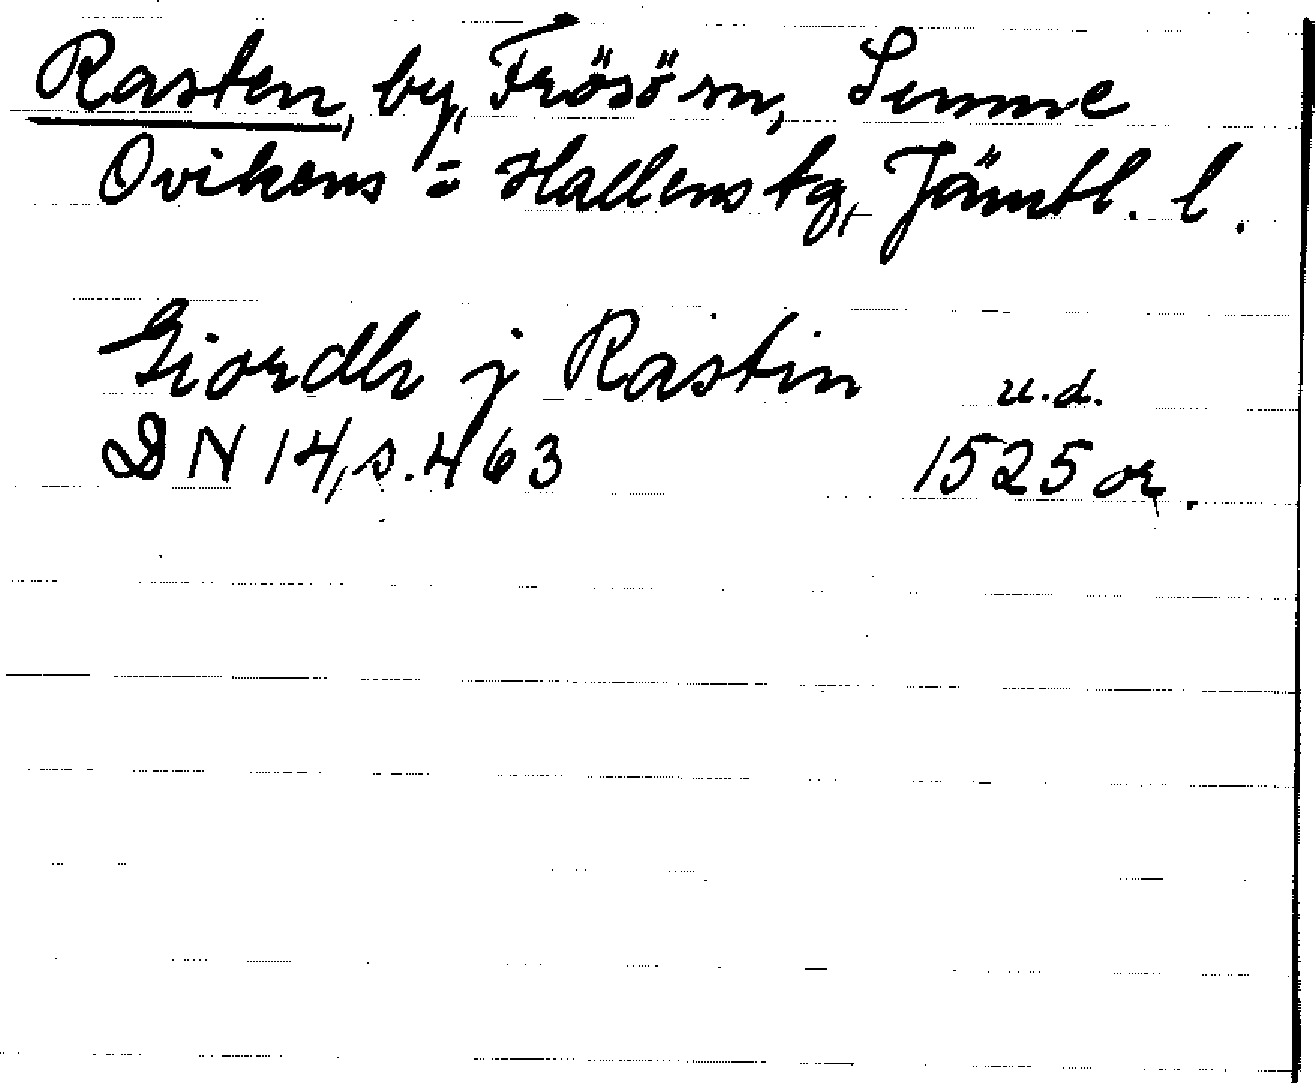 Rasten, by, Frösö sn, Sunne
Ovikens = Hallens tg, Jämtl. l.
Giordh j Rastin u.d.
DN 14, s. 463 1525 or.